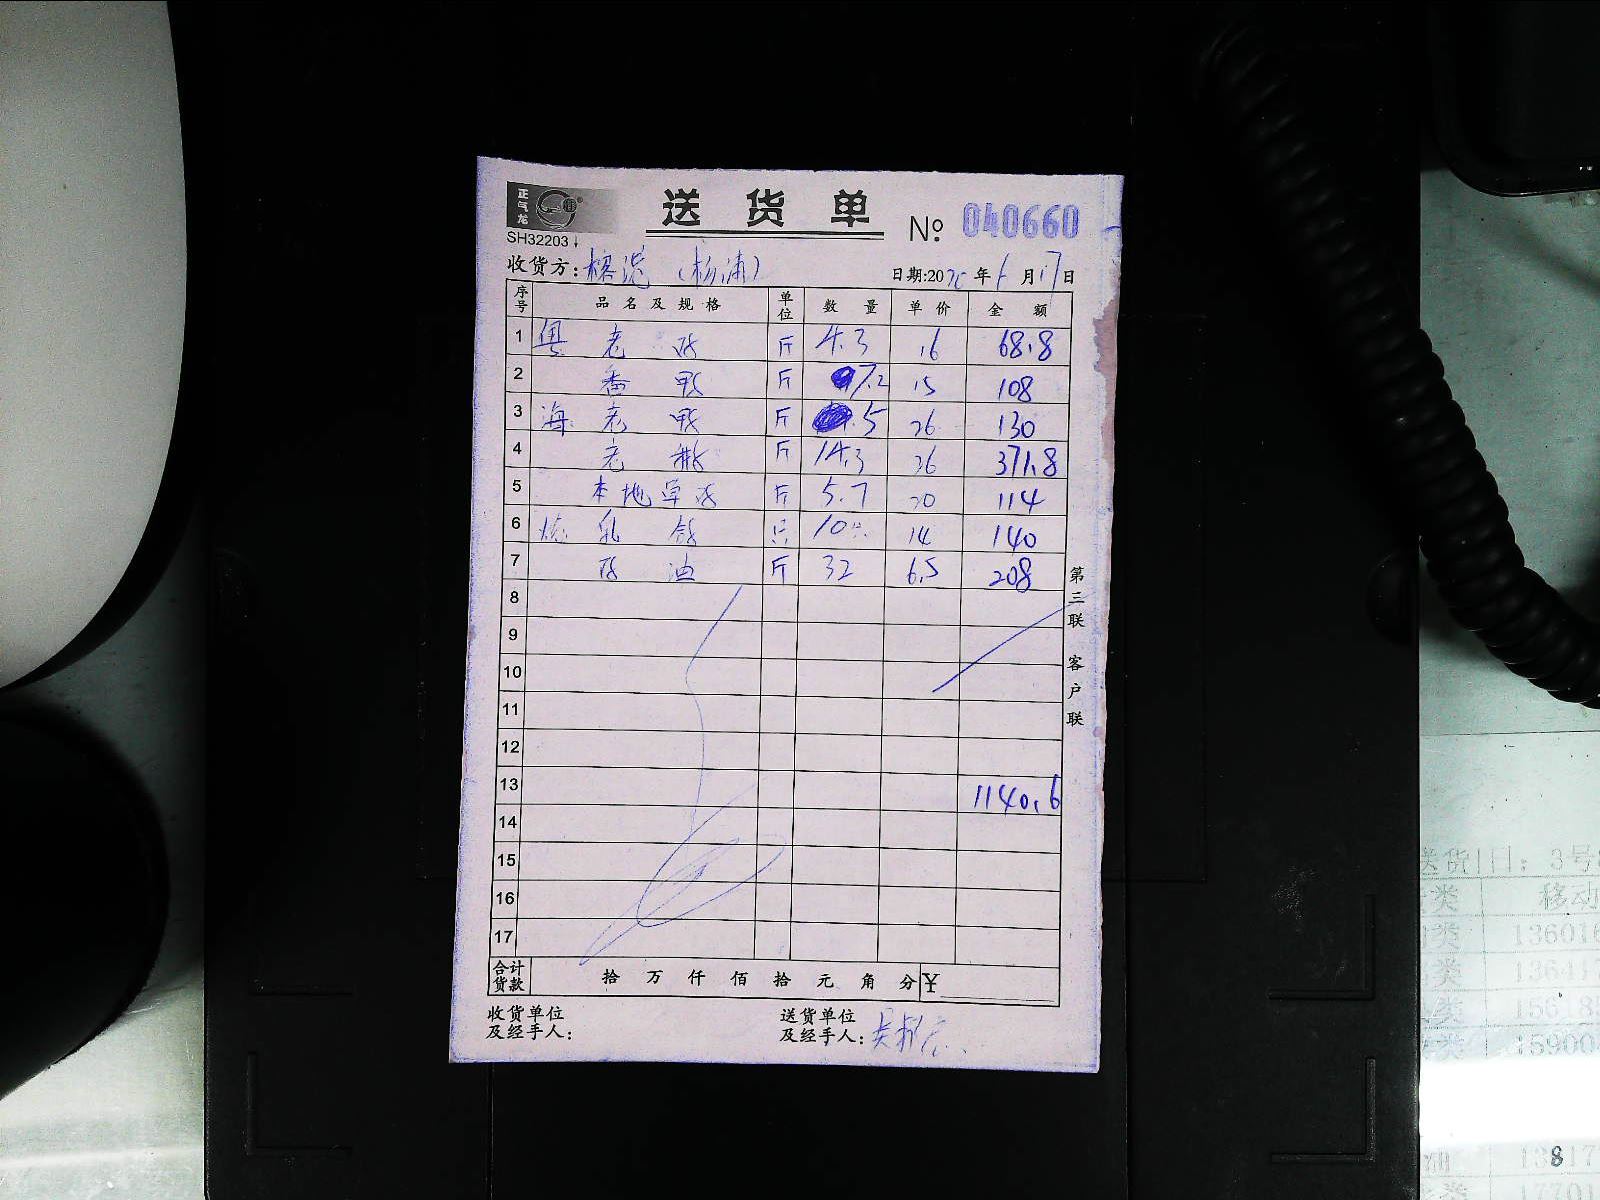 正气龙
送货单
№ 040660
SH32203
收货方: (杨浦) 日期:2020年6月17日
序号 品名及规格 单位 数量 单价 金额
1 粤 老 斤 4.3 16 68.8
2 番鸭 斤 7.2 15 108
3 海 老鸭 斤 5 26 130
4 老 斤 14.3 26 371.8
5 本地草 斤 5.7 20 114
6 乳鸽 只 10只 14 140
7 油 斤 32 6.5 208
8
9
10
11
12
13 1140.6
14
15
16
17
合计货款 拾 万 仟 佰 拾 元 角 分 ¥
收货单位及经手人:
送货单位及经手人:
第三联 客户联
送货日: 3号
类 移动
类 13601
类 13641
类 15618
类 15900